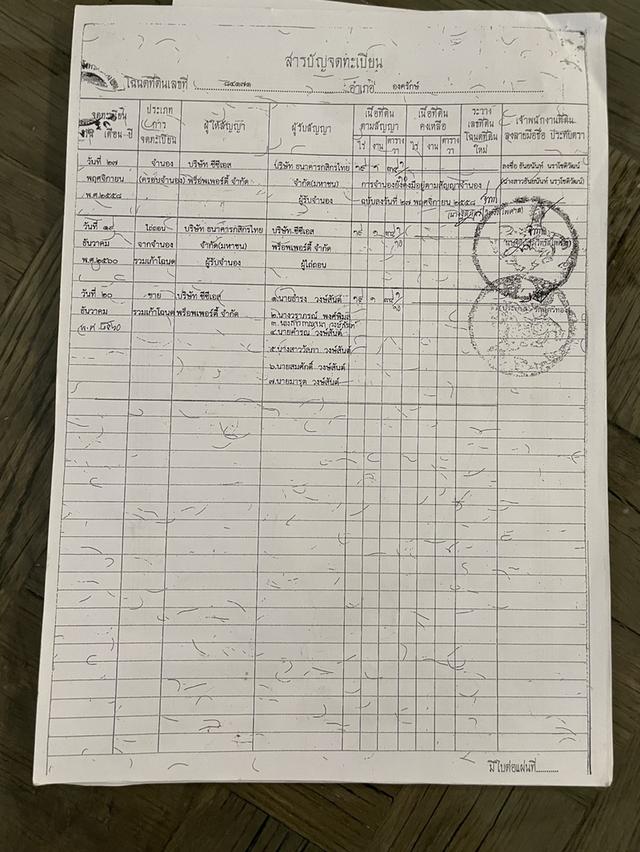 สารบัญจดทะเบียน
โฉนดที่ดินเลขที่ ๘๔๑๗๑ อำเภอ องครักษ์
จดทะเบียน วัน เดือน ปี
ประเภทการจดทะเบียน
ผู้ให้สัญญา
ผู้รับสัญญา
เนื้อที่ดินตามสัญญา
ไร่ งาน ตารางวา
เนื้อที่ดินคงเหลือ
ไร่ งาน ตารางวา
ระวาง เลขที่ดิน โฉนดที่ดินใหม่
เจ้าพนักงานที่ดิน ลงลายมือชื่อ ประทับตรา
วันที่ ๒๗ จำนอง บริษัท ซีซีเอส บริษัท ธนาคารกสิกรไทย ๑๙ ๑
พฤศจิกายน (ครอบจำนอง) พร็อพเพอร์ตี้ จำกัด จำกัด(มหาชน) การจำนองยังคงมีอยู่ตามสัญญาจำนอง
พ.ศ.๒๕๕๘ ผู้รับจำนอง ฉบับลงวันที่ ๒๗ พฤศจิกายน ๒๕๕๘
วันที่ ๑๙ ไถ่ถอน บริษัท ธนาคารกสิกรไทย บริษัท ซีซีเอส ๑๙ ๑
ธันวาคม จากจำนอง จำกัด(มหาชน) พร็อพเพอร์ตี้ จำกัด
พ.ศ.๒๕๖๐ รวมเก้าโฉนด ผู้รับจำนอง ผู้ไถ่ถอน
วันที่ ๒๐ ขาย บริษัท ซีซีเอส ๑.นายธำรง วงษ์สันต์ ๑๙ ๑
ธันวาคม รวมเก้าโฉนด พร็อพเพอร์ตี้ จำกัด ๒.นางวราภรณ์
พ.ศ. ๒๕๖๐
๔.นายดำรณ วงษ์สันต์
๕.นางสาววัลภา วงษ์สันต์
๖.นายสมศักดิ์ วงษ์สันต์
๗.นายมารุต วงษ์สันต์
มีใบต่อแผ่นที่